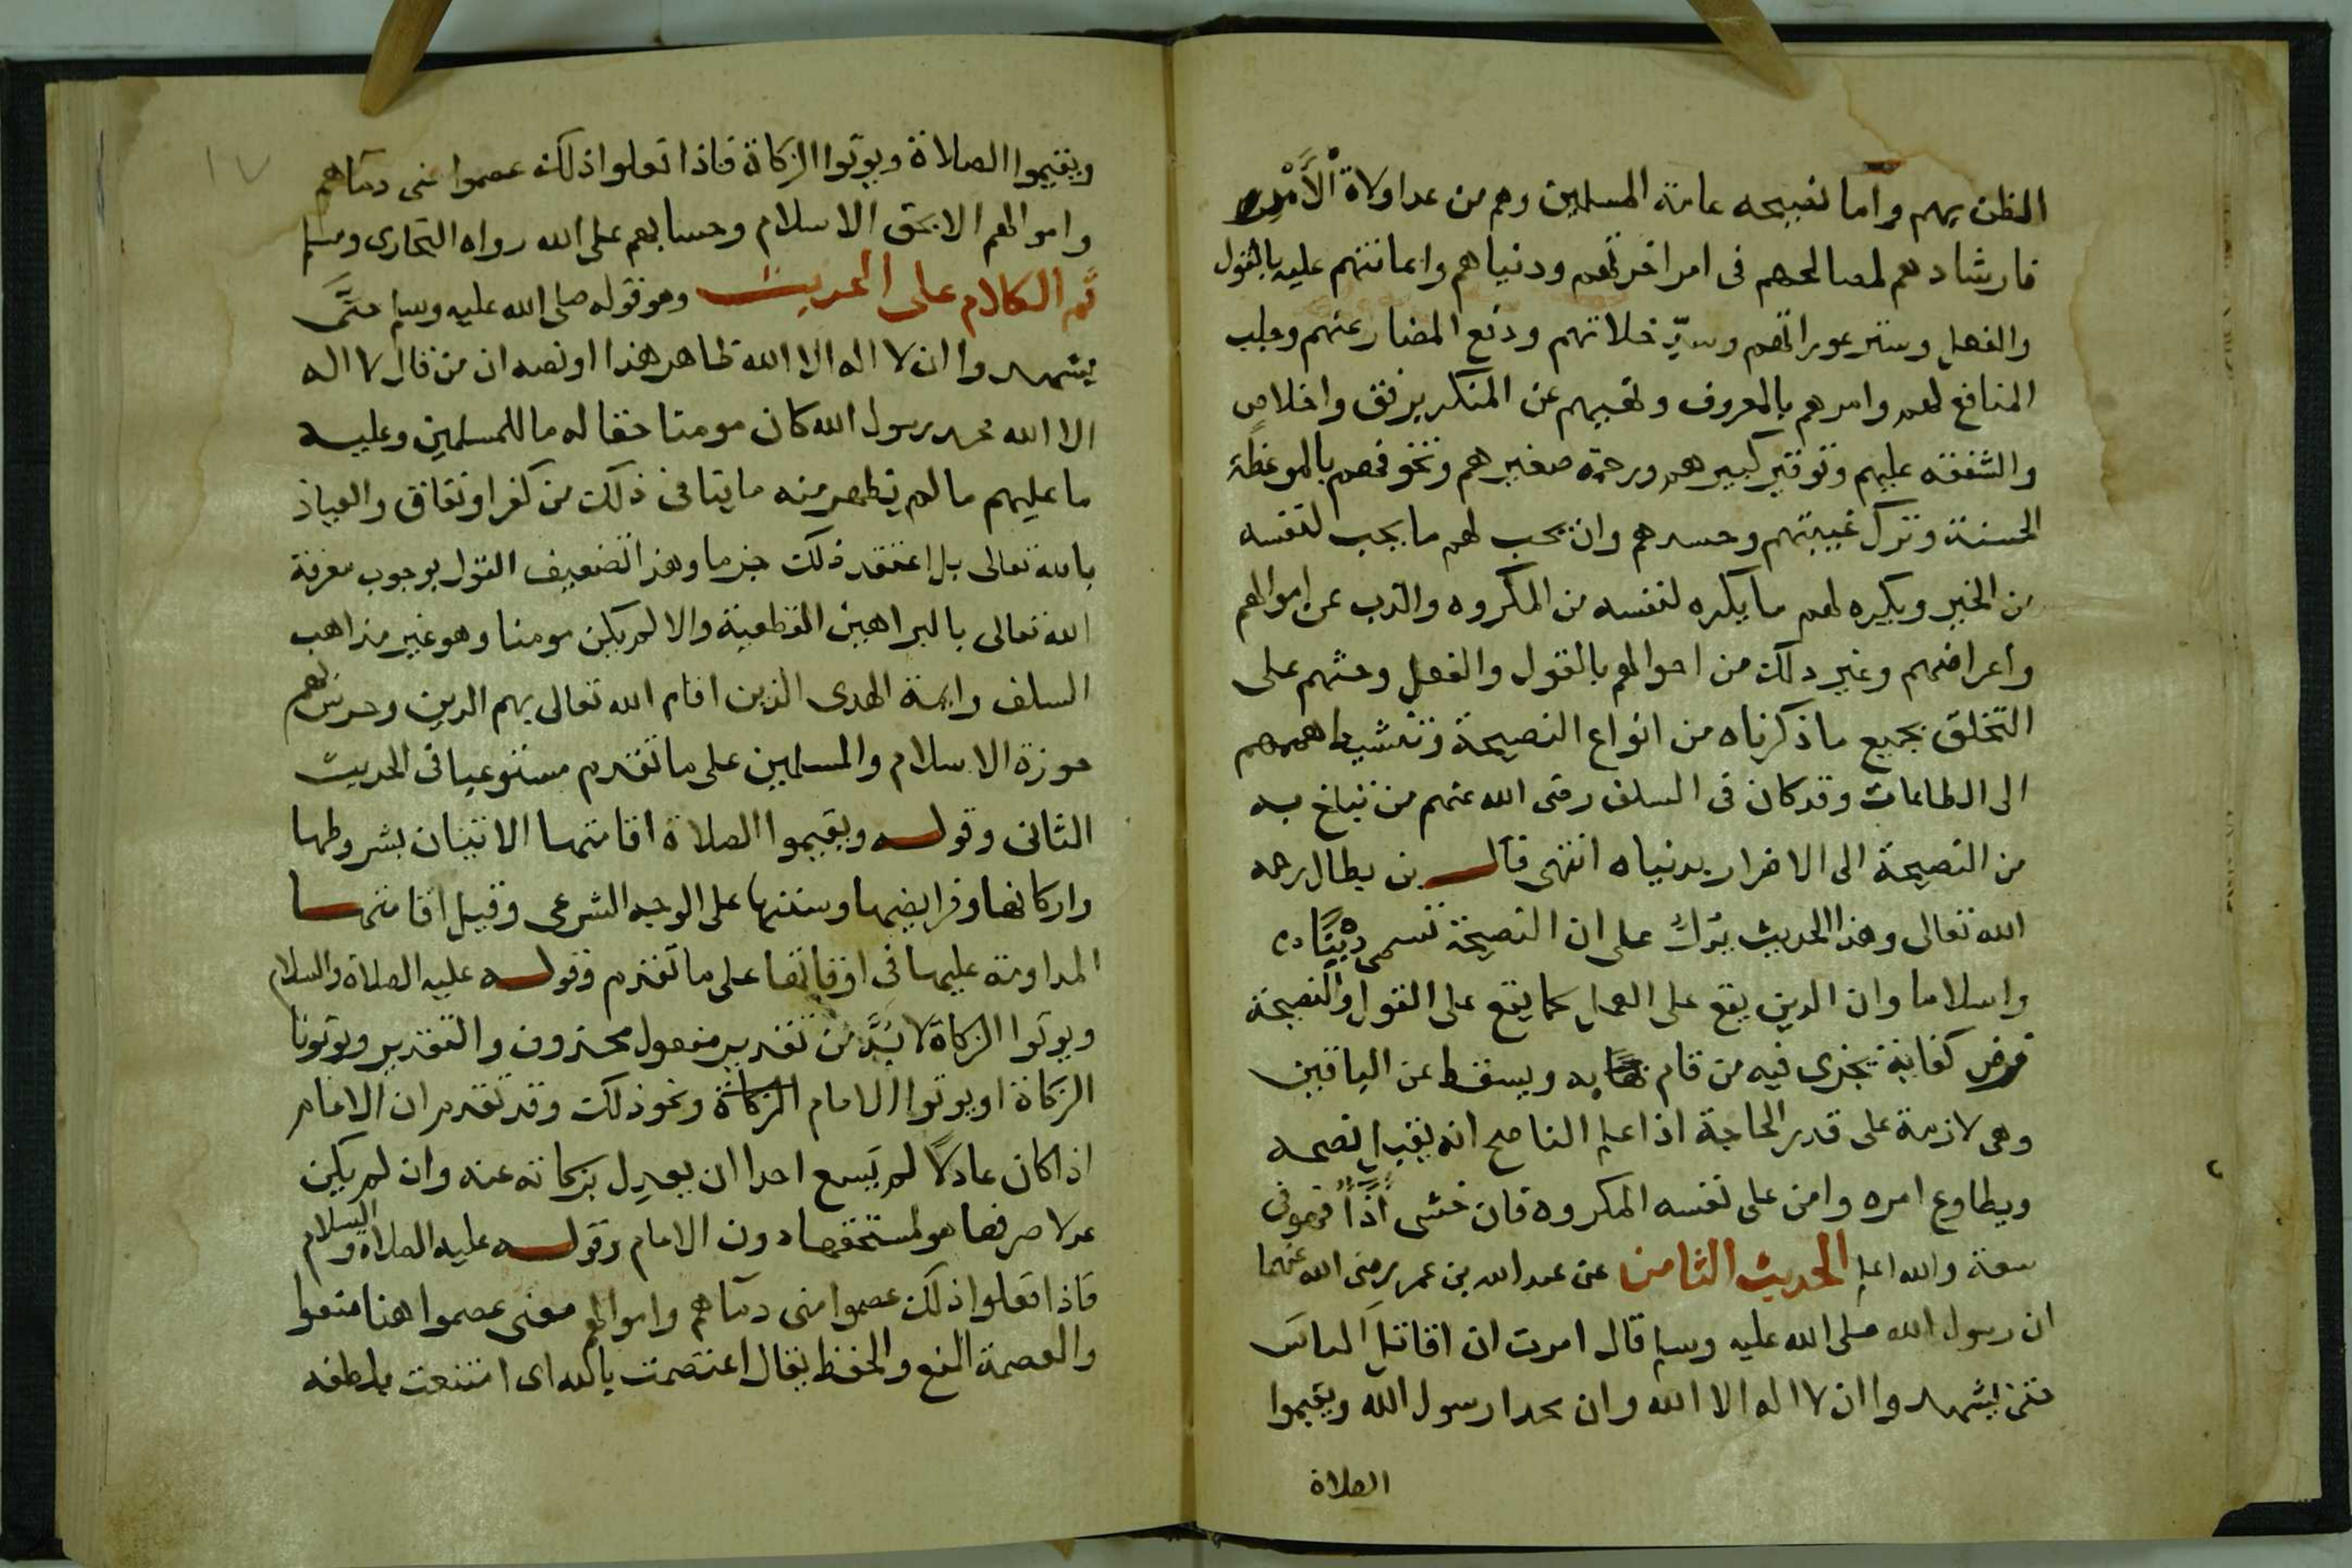 الظن بهم واما نصيحه عامة المسلمين وهم من عدا ولاة الأمر
فارشادهم لمصالحهم فى امر اخرتهم ودنياهم واعانتهم عليه بالقول
والفعل وستر عوراتهم وسدّ خلاتهم ودفع المضار عنهم وجلب
المنافع لهم وامرهم بالمعروف ونهيهم عن المنكر برفق واخلاص
والشفقه عليهم وتوقير كبيرهم ورحمة صغيرهم وتخوفهم بالموعظة
الحسنة وترك غيبتهم وحسدهم وان يحب لهم ما يحب لنفسه
من الخير ويكره لهم ما يكره لنفسه من المكروه والذب عن اموالهم
واعراضهم وغير ذلك من احوالهم بالقول والفعل وحثهم على
التخلق بجميع ما ذكرناه من انواع النصيحة وتنشيط هممهم
الى الطاعات وقد كان فى السلف رضى الله عنهم من تبلغ به
من النصيحة الى الاضرار بدنياه انتهى قال بن بطال رحمه
الله تعالى وهذا الحديث يدل على ان النصيحة تسمى دينًا
واسلاما وان الدين يقع على العمل كما يقع على القول والنصيحة
فرض كفاية يجزى فيه من قام به ويسقط عن الباقين
وهى لازمة على قدر الحاجة اذا علم الناصح انه يقبل نصحه
ويطاوع امره وامن على نفسه المكروه فان خشى أذًا فهو فى
سعة والله اعلم الحديث الثامن عن عبد الله بن عمر رضى الله عنهما
ان رسول الله صلى الله عليه وسلم قال امرت ان اقاتل الناس
حتى يشهدوا ان لا اله الا الله وان محمدا رسول الله ويقيموا
الصلاة
١٧
ويقيموا الصلاة ويوتوا الزكاة فاذا فعلوا ذلك عصموا منى دماهم
واموالهم الا بحق الاسلام وحسابهم على الله رواه البخارى ومسلم
ثم الكلام على الحديث وهو قوله صلى الله عليه وسلم حتَّى
يشهدوا ان لا اله الا الله ظاهر هذا او نصه ان من قال لا اله
الا الله محمد رسول الله كان مومنا حقا له ما للمسلمين وعليه
ما عليهم ما لم يظهر منه ما ينافى ذلك من كفر او نفاق والعياذ
بالله تعالى بل اعتقد ذلك جزما وهذا تضعيف القول بوجوب معرفة
الله تعالى بالبراهين القطعية والا لم يكن مومنا وهو غير مذاهب
السلف وايمة الهدى الذين اقام الله تعالى بهم الدين وحرس بهم
حوزة الاسلام والمسلمين على ما تقدم مستوعبا فى الحديث
الثانى وقوله ويقيموا الصلاة اقامتها الاتيان بشروطها
واركانها وفرايضها وسننها على الوجه الشرعى وقيل اقامتها
المداومة عليها فى اوقاتها على ما تقدم وقوله عليه الصلاة والسلام
ويوتوا الزكاة لا بُدَّ من تقدير مفعول محذوف والتقدير ويوتونا
الزكاة او يوتوا الامام الزكاة ونحو ذلك وقد تقدم ان الامام
اذا كان عادلاً لم يَسع احدا ان يعدل بزكاته عنه وان لم يكن
عدلا صرفها هو لمستحقها دون الامام وقوله عليه الصلاة والسلام
فاذا فعلوا ذلك عصموا منى دماهم واموالهم معنى عصموا هنا منعوا
والعصمة المنع والحفظ يقال اعتصمت بالله اى امتنعت بلطفه